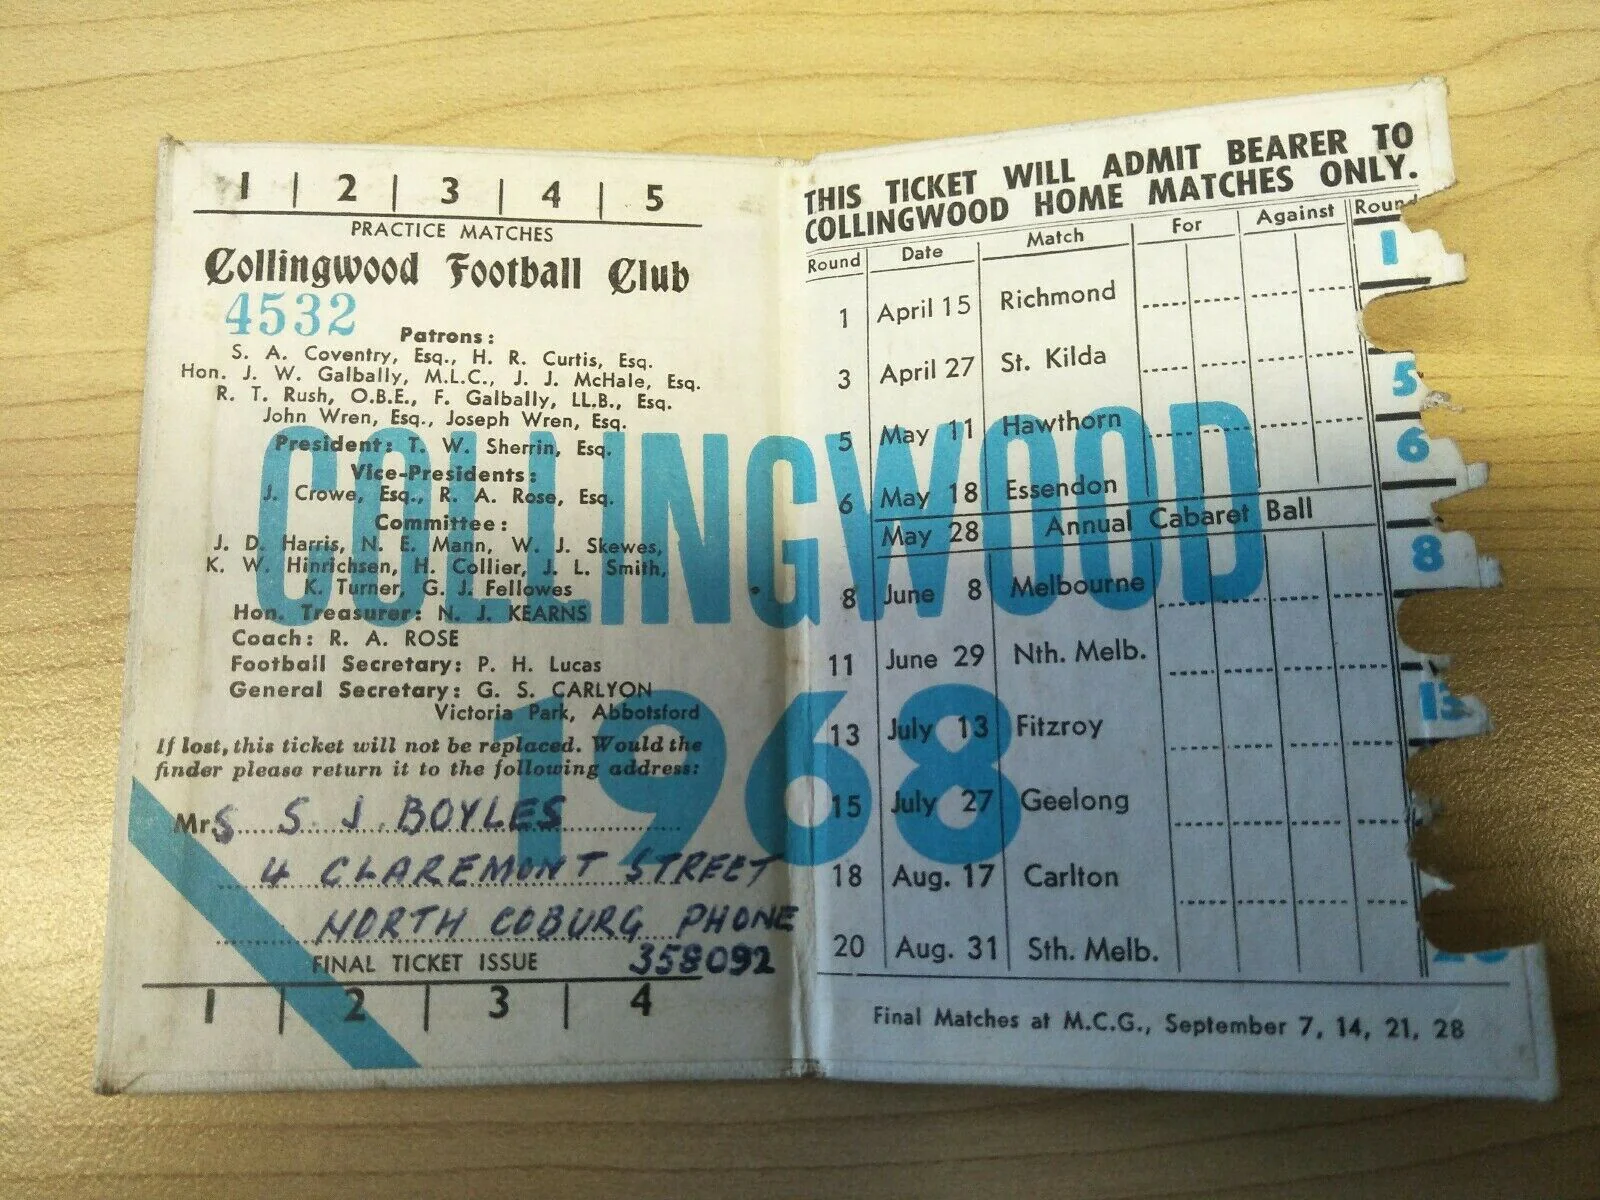 1 | 2 | 3 | 4 | 5
PRACTICE MATCHES
Collingwood Football Club
4532
Patrons:
S. A. Coventry, Esq., H. R. Curtis, Esq.
Hon. J. W. Galbally, M.L.C., J. J. McHale, Esq.
R. T. Rush, O.B.E., F. Galbally, LL.B., Esq.
John Wren, Esq., Joseph Wren, Esq.
President: T. W. Sherrin, Esq.
Vice-Presidents:
J. Crowe, Esq., R. A. Rose, Esq.
Committee:
J. D. Harris, N. E. Mann, W. J. Skewes,
K. W. Hinrichsen, H. Collier, J. L. Smith,
K. Turner, G. J. Fellowes
Hon. Treasurer: N. J. KEARNS
Coach: R. A. ROSE
Football Secretary: P. H. Lucas
General Secretary: G. S. CARLYON
Victoria Park, Abbotsford
If lost, this ticket will not be replaced. Would the
finder please return it to the following address:
Mrs S. J. BOYLES
4 CLAREMONT STREET
NORTH COBURG PHONE
358092
FINAL TICKET ISSUE
1 | 2 | 3 | 4
COLLINGWOOD
1968
THIS TICKET WILL ADMIT BEARER TO
COLLINGWOOD HOME MATCHES ONLY.
Round Date Match For Against Round
1 April 15 Richmond 1
3 April 27 St. Kilda
5 May 11 Hawthorn 5
6 May 18 Essendon 6
May 28 Annual Cabaret Ball
8 June 8 Melbourne 8
11 June 29 Nth. Melb.
13 July 13 Fitzroy 13
15 July 27 Geelong
18 Aug. 17 Carlton
20 Aug. 31 Sth. Melb.
Final Matches at M.C.G., September 7, 14, 21, 28